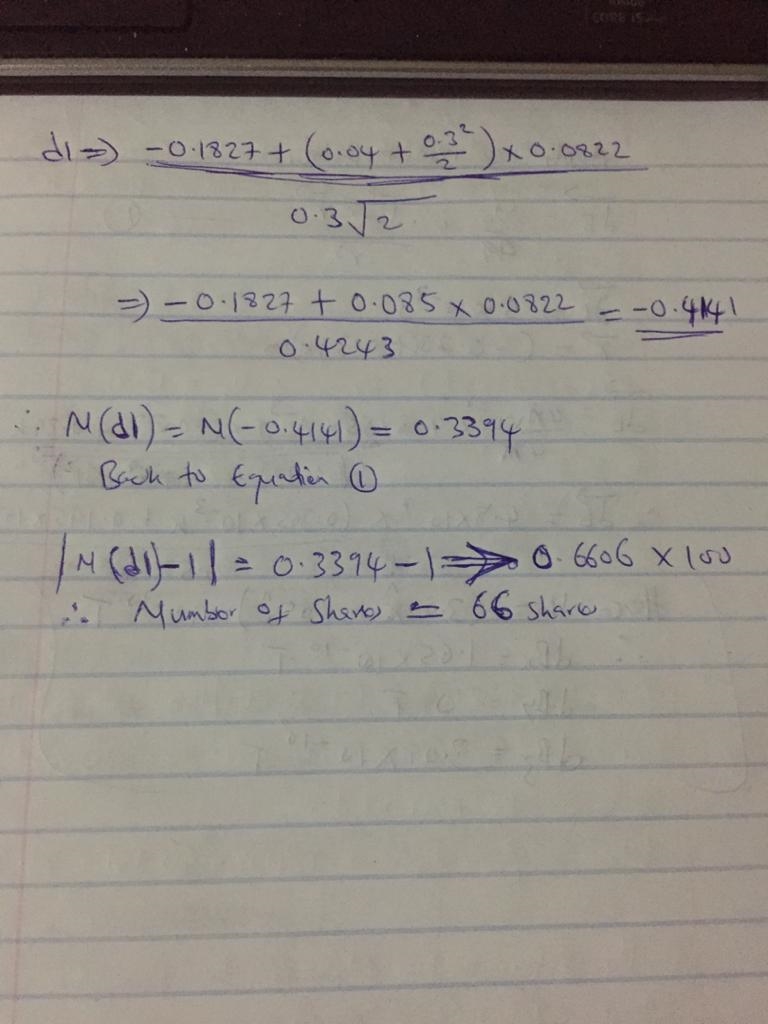 d1 ⇒ -0.1827 + (0.04 + 0.3²/2) × 0.0822
0.3√2
⇒ -0.1827 + 0.085 × 0.0822 = -0.4141
0.4243
∴ N(d1) = N(-0.4141) = 0.3394
Back to Equation ①
|N(d1)-1| = 0.3394 - 1 ⇒ 0.6606 × 100
∴ Number of Shares = 66 shares